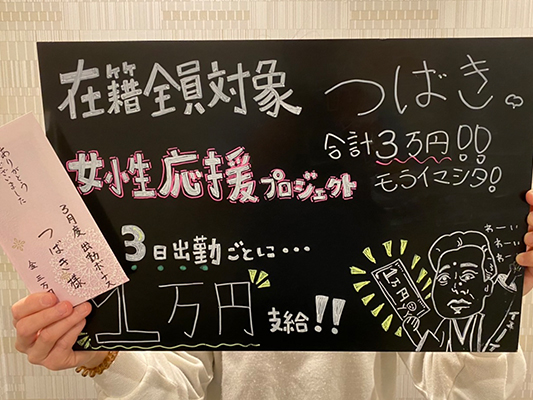 在籍全員対象
つばき。
女性応援プロジェクト
合計3万円!!
モライマシタ!
3日出勤ごとに・・・
1万円
支給!!
1万円
わーい
わーい
ありがとう
ございました
3月度 出勤ボーナス
つばき様
金 三万